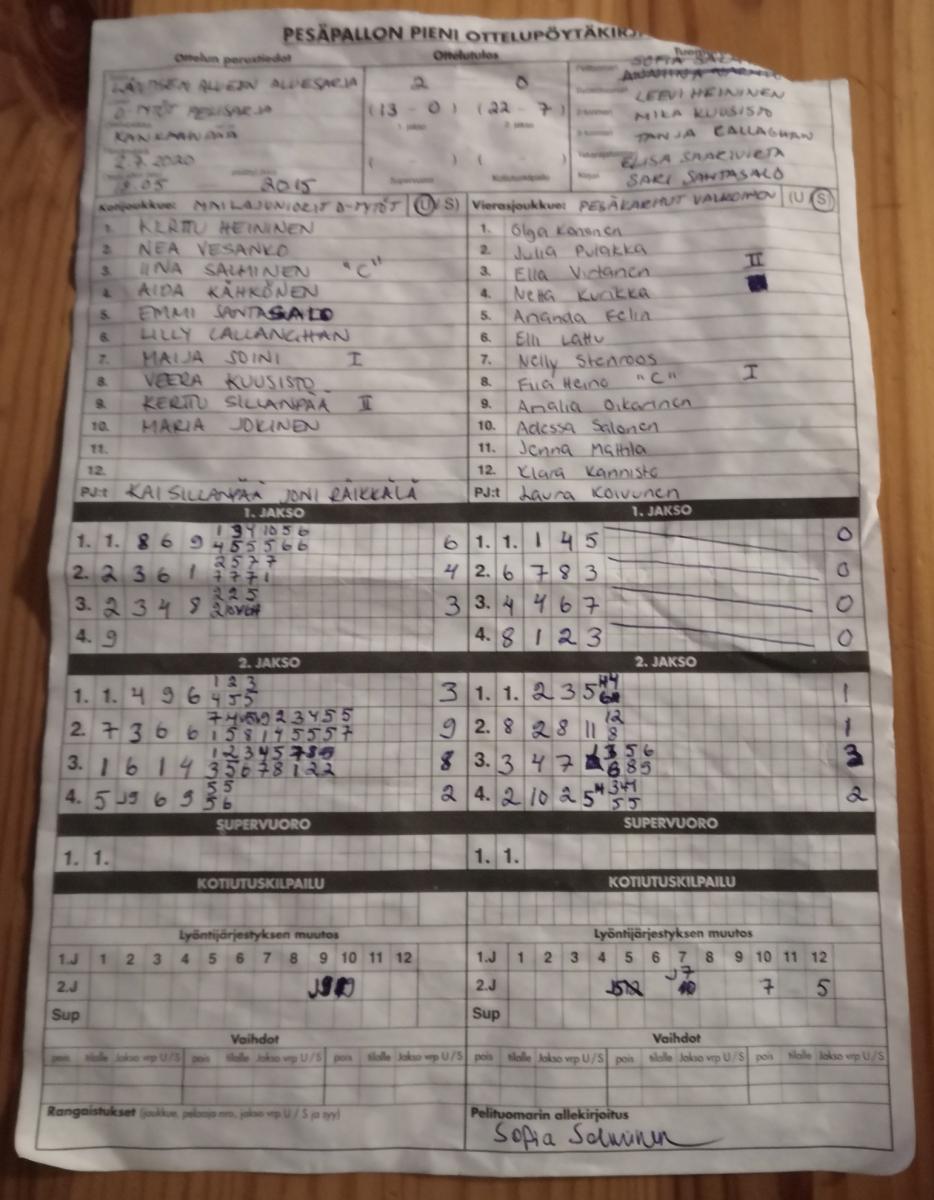 PESÄPALLON PIENI OTTELUPÖYTÄKIRJA
Ottelun perustiedot
Ottelutulos
LÄNTISEN ALUEEN ALUESARJA
D-TYTÖT PELISARJA
KANKAANPÄÄ
2.7.2020
18.05 2015
2 0
(13 - 0) (22 - 7)
1. jakso 2. jakso
( - ) ( - )
Supervuoro Kotiutuskilpailu
LEEVI HEININEN
MIKA KUUSISTO
TANJA CALLAGHAN
ELISA SAARIVIRTA
SARI SANTASALO
Kotijoukkue: MAILAJUNIORIT D-TYTÖT (U/S)
1. KERTTU HEININEN
2. NEA VESANKO
3. IINA SALMINEN "C"
4. AIDA KÄHKÖNEN
5. EMMI SANTASALO
6. LILLY CALLANGHAN
7. MAIJA SOINI I
8. VEERA KUUSISTO
9. KERTTU SILLANPÄÄ II
10. MARIA JOKINEN
11.
12.
PJ:t KAI SILLANPÄÄ JONI RÄIKKÄLÄ
Vierasjoukkue: PESÄKARHUT VALKOINEN (U/S)
1. Olga Kononen
2. Julia Pulakka
3. Ella Virtanen II
4. Netta Kurikka
5. Amanda Eelin
6. Elli Lattu
7. Nelly Stenroos
8. Eija Heino "C" I
9. Amalia Oikarinen
10. Adessa Salonen
11. Jenna Mattila
12. Klara Kannisto
PJ:t Laura Koivunen
1. JAKSO
1. 1. 8 6 9 1 3 4 10 5 6 6
4 5 5 5 6 6
2. 2 3 6 1 2 5 7 7 4
7 7 7 1
3. 2 3 4 8 2 2 5 3
4. 9
1. JAKSO
1. 1. 1 4 5 0
2. 6 7 8 3 0
3. 4 4 6 7 0
4. 8 1 2 3 0
2. JAKSO
1. 1. 4 9 6 1 2 3 3
4 5 5
2. 7 3 6 6 9
1 5 8 1 4 5 5 5 7
3. 1 6 1 4 1 2 3 4 5 7 8 9 8
3 5 6 7 8 1 2 2
4. 5 J9 6 9 5 5 2
5 6
2. JAKSO
1. 1. 2 3 5 1
2. 8 2 8 11 12 1
8
3. 3 4 7 3 5 6 3
6 8 9
4. 2 10 2 5 2
5 5
SUPERVUORO
1. 1.
SUPERVUORO
1. 1.
KOTIUTUSKILPAILU
KOTIUTUSKILPAILU
Lyöntijärjestyksen muutos
1.J 1 2 3 4 5 6 7 8 9 10 11 12
2.J
Sup
Lyöntijärjestyksen muutos
1.J 1 2 3 4 5 6 7 8 9 10 11 12
2.J J7 7 5
Sup
Vaihdot
pois tilalle Jakso vrp U/S pois tilalle Jakso vrp U/S pois tilalle Jakso vrp U/S
Vaihdot
pois tilalle Jakso vrp U/S pois tilalle Jakso vrp U/S pois tilalle Jakso vrp U/S
Rangaistukset (joukkue, pelaaja nro, jakso vrp U / S ja syy)
Pelituomarin allekirjoitus
Sofia Salminen